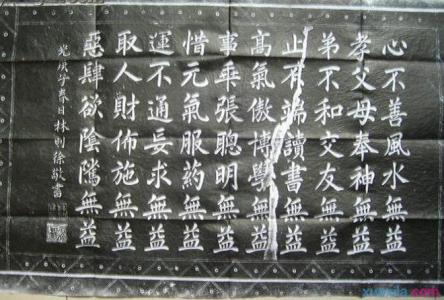 心不善風水無益
孝父母奉神無益
弟不和交友無益
止端讀書無益
高氣傲博學無益
事乖張聰明無益
惜元氣服藥無益
運不通妄求無益
取人財佈施無益
惡肆欲陰騭無益
光庚子春日林則徐敬書